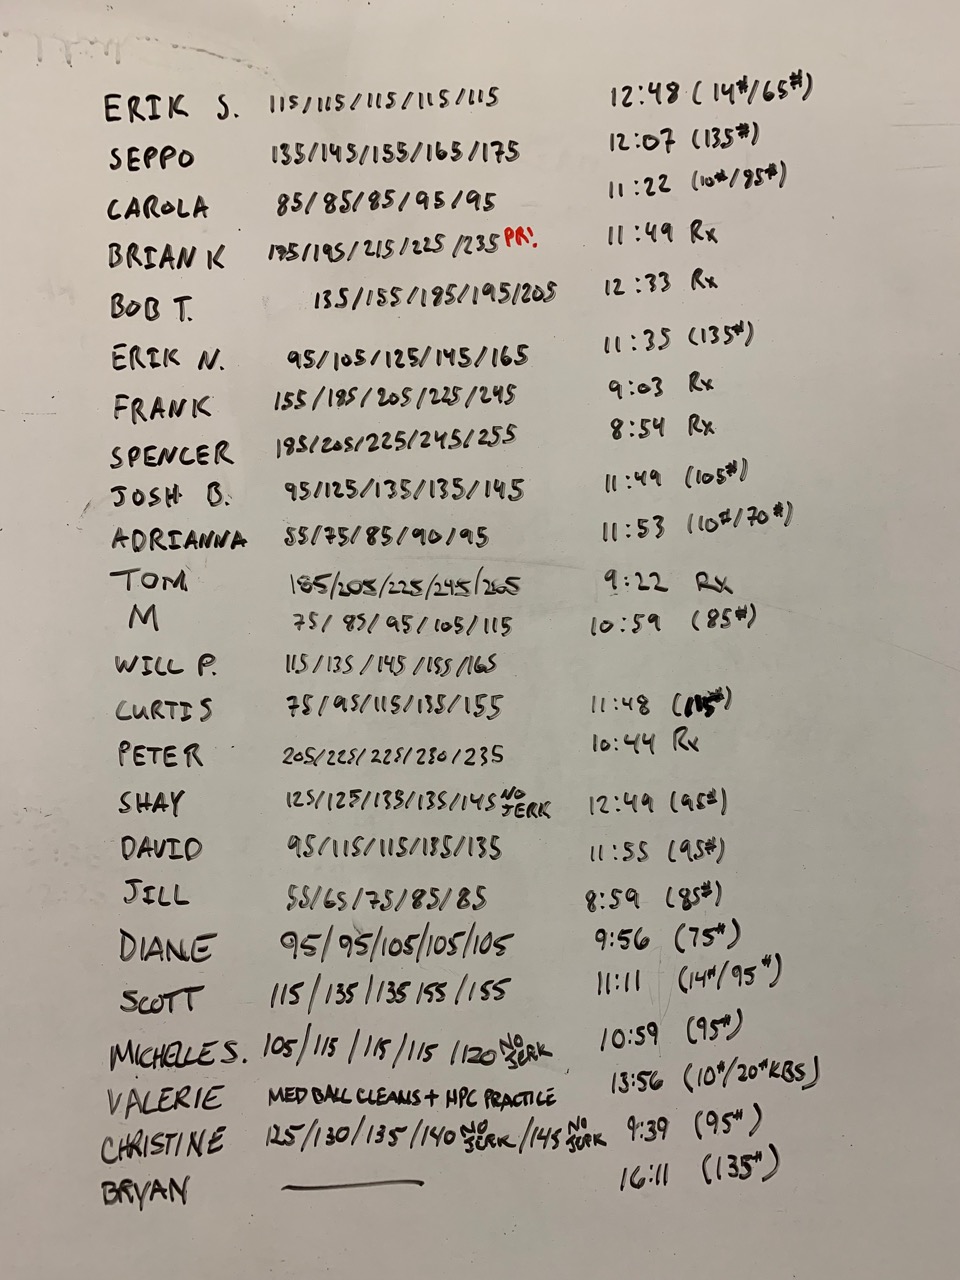 ERIK S. 115/115/115/115/115 12:48 (14#/65#)
SEPPO 135/145/155/165/175 12:07 (135#)
CAROLA 85/85/85/95/95 11:22 (10#/85#)
BRIAN K 175/195/215/225/235 PR! 11:49 Rx
BOB T. 135/155/185/195/205 12:33 Rx
ERIK N. 95/105/125/145/165 11:35 (135#)
FRANK 155/185/205/225/245 9:03 Rx
SPENCER 185/205/225/245/255 8:54 Rx
JOSH B. 95/125/135/135/145 11:49 (105#)
ADRIANNA 55/75/85/90/95 11:53 (10#/70#)
TOM 185/205/225/245/265 9:22 Rx
M 75/85/95/105/115 10:59 (85#)
WILL P. 115/135/145/155/165
CURTIS 75/95/115/135/155 11:48 (115#)
PETER 205/225/225/230/235 10:44 Rx
SHAY 125/125/135/135/145 NO JERK 12:49 (95#)
DAVID 95/115/115/135/135 11:55 (95#)
JILL 55/65/75/85/85 8:59 (85#)
DIANE 95/95/105/105/105 9:56 (75#)
SCOTT 115/135/135 155/155 11:11 (14#/95#)
MICHELLE S. 105/115/115/115/120 NO JERK 10:59 (95#)
VALERIE MED BALL CLEANS + HPC PRACTICE 13:56 (10#/20#KBS)
CHRISTINE 125/130/135/140 NO JERK/145 NO JERK 9:39 (95#)
BRYAN 16:11 (135#)